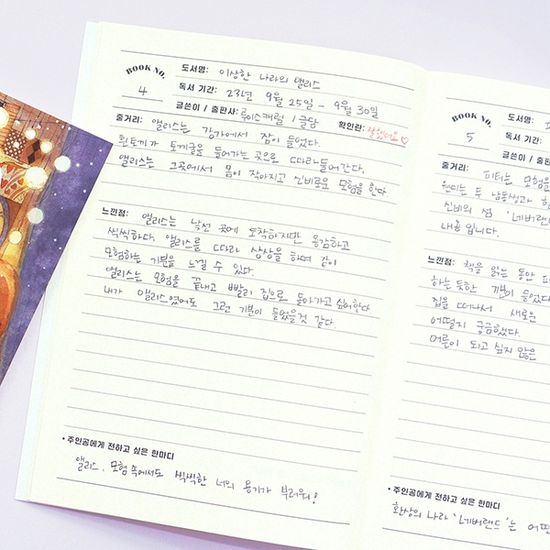 BOOK NO.
4
도서명: 이상한 나라의 앨리스
독서 기간: 23년 9월 25일 - 9월 30일
글쓴이 / 출판사: 루이스캐럴 / 글담 확인란: 잘했어요♡
줄거리: 앨리스는 강가에서 잠이 들었다.
흰토끼가 토끼굴을 들어가는 곳으로 따라들어간다.
앨리스는 그곳에서 몸이 작아지고 신비로운 모험을 한다
느낀점: 앨리스는 낯선 곳에 도착하지만 용감하고
씩씩하다. 앨리스를 따라 상상을 하며 같이
모험하는 기분을 느낄 수 있다.
앨리스는 모험을 끝내고 빨리 집으로 돌아가고 싶어한다
내가 앨리스였어도 그런 기분이 들었을것 같다
• 주인공에게 전하고 싶은 한마디
앨리스, 모험 속에서도 씩씩한 너의 용기가 부러워!
BOOK NO.
5
도서명:
독서 기간:
글쓴이 / 출판
줄거리: 피터는 모험을
웬디는 두 남동생과
신비의 섬 '네버랜
내용 입니다.
느낀점: 책을 읽는 동안
하는듯한 들었다
집을 떠나서 새로운
어떨지 궁금했다.
어른이 되고 싶지 않은
• 주인공에게 전하고 싶은 한마디
환상의 나라 '네버랜드'는